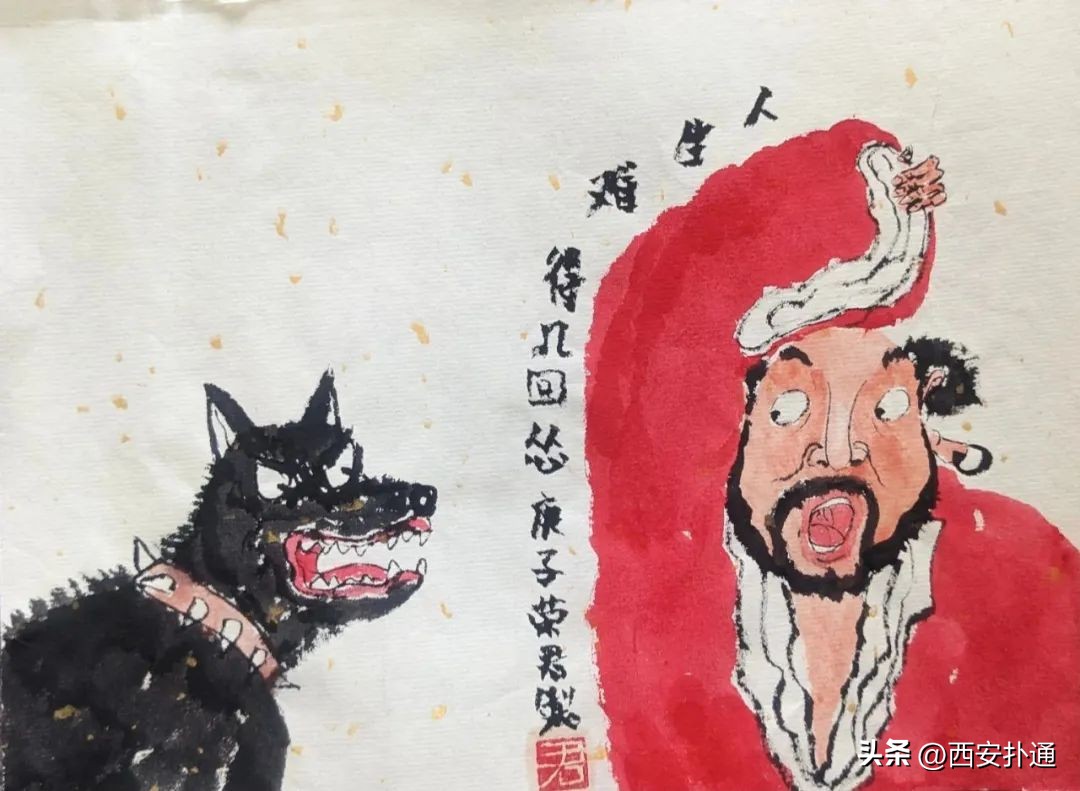 人生难得几回怂 庚子荣君制
君
头条 @西安扑通